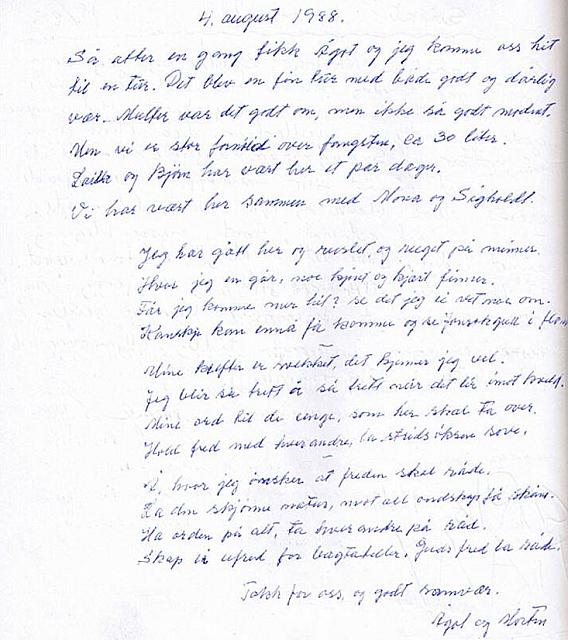 4. august 1988.
Så atter en gang fikk Ågot og jeg komme oss hit
til en tur. Det blev en fin tur med både godt og dårlig
vær. Multer var det godt om, men ikke så godt modnet.
Men vi er stor fornøid over fangsten, ca 30 liter.
Laila og Bjørn har vært her et par dager.
Vi har vært her sammen med Mona og Sigholdt.
Jeg har gått her og ruslet, og ruget på minner.
Hvor jeg en går, noe kjent og kjært finner.
Får jeg komme mer hit? se det jeg ei vet noe om.
Kanskje kan ennå få komme og se
Mine krefter er svekket, det kjenner jeg vel.
Jeg blir så trett å så trett når det lir imot kveld.
Mine ord til de unge, som her skal ta over.
Hold fred med hverandre, la stridsøksen sove.
Å, hvor jeg ønsker at freden skal råde.
La den skjønne natur, mot all ondskap få skåne.
Ha orden på alt, ta hverandre på råd.
Skap ei ufred for bagateller. Guds fred la råde.
Takk for oss, og godt samvær.
Ågot og Morten